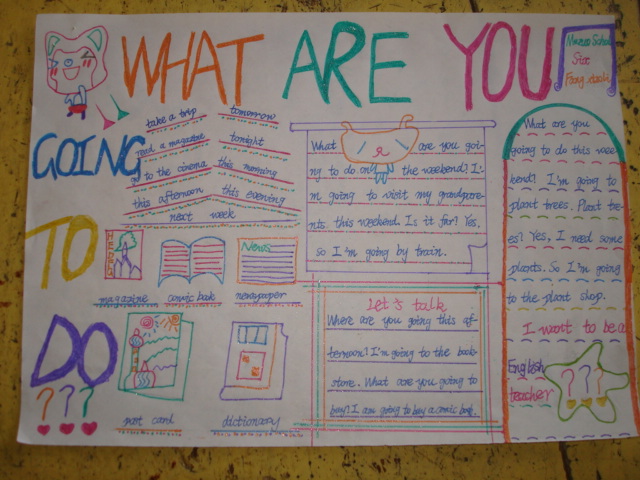 WHAT ARE YOU
GOING
TO
DO
???
take a trip
tomorrow
read a magazine
tonight
go to the cinema
this morning
this afternoon
this evening
next week
NEWS
magazine
comic book
newspaper
post card
dictionary
What are you goi-
ng to do on the weekend? I'
m going to visit my grandpare-
nts this weekend. Is it far? Yes,
so I'm going by train.
Let's talk
Where are you going this af-
ternoon? I'm going to the book-
store. What are you going to
buy? I am going to buy a comic book.
School
Six
What are you
going to do this week
kend? I'm going to
plant trees. Plant tre-
es? Yes, I need some
plants. So I'm going
to the plant shop.
I want to be a
English
teacher
???